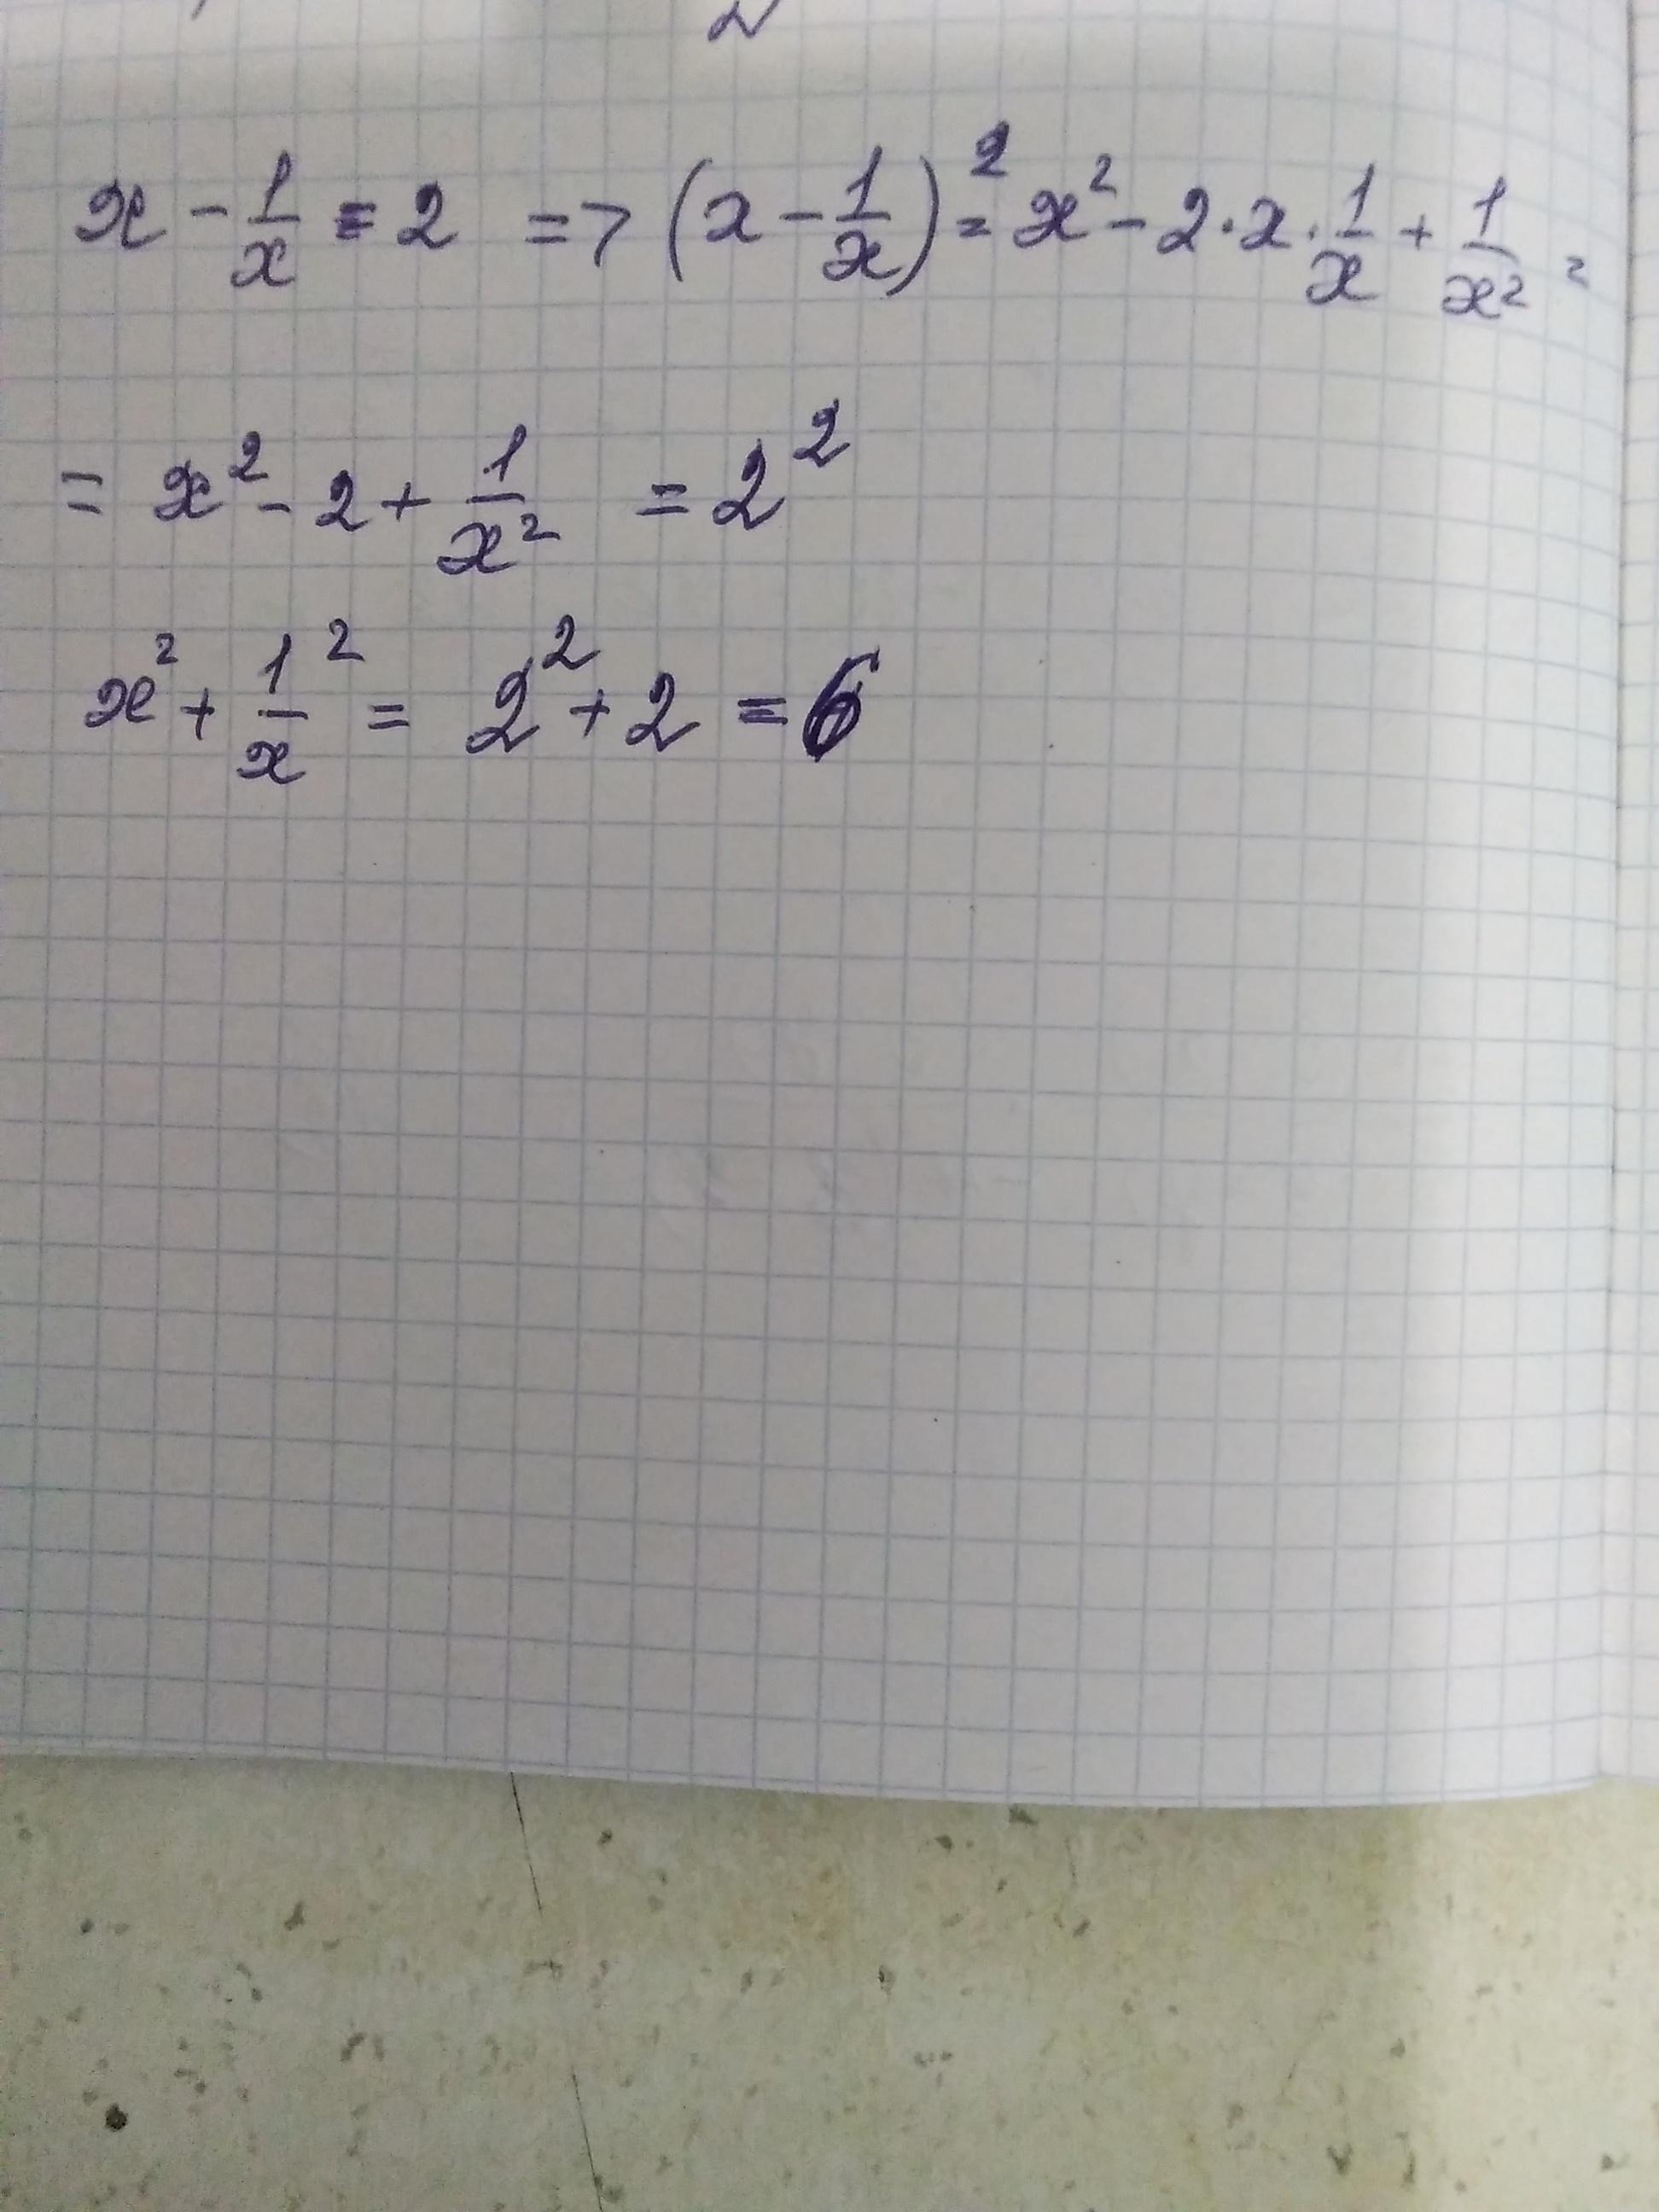 2
x - 1/x = 2 => (x - 1/x)² = x² - 2·x·1/x + 1/x² =
= x² - 2 + 1/x² = 2²
x² + 1²/x = 2² + 2 = 6